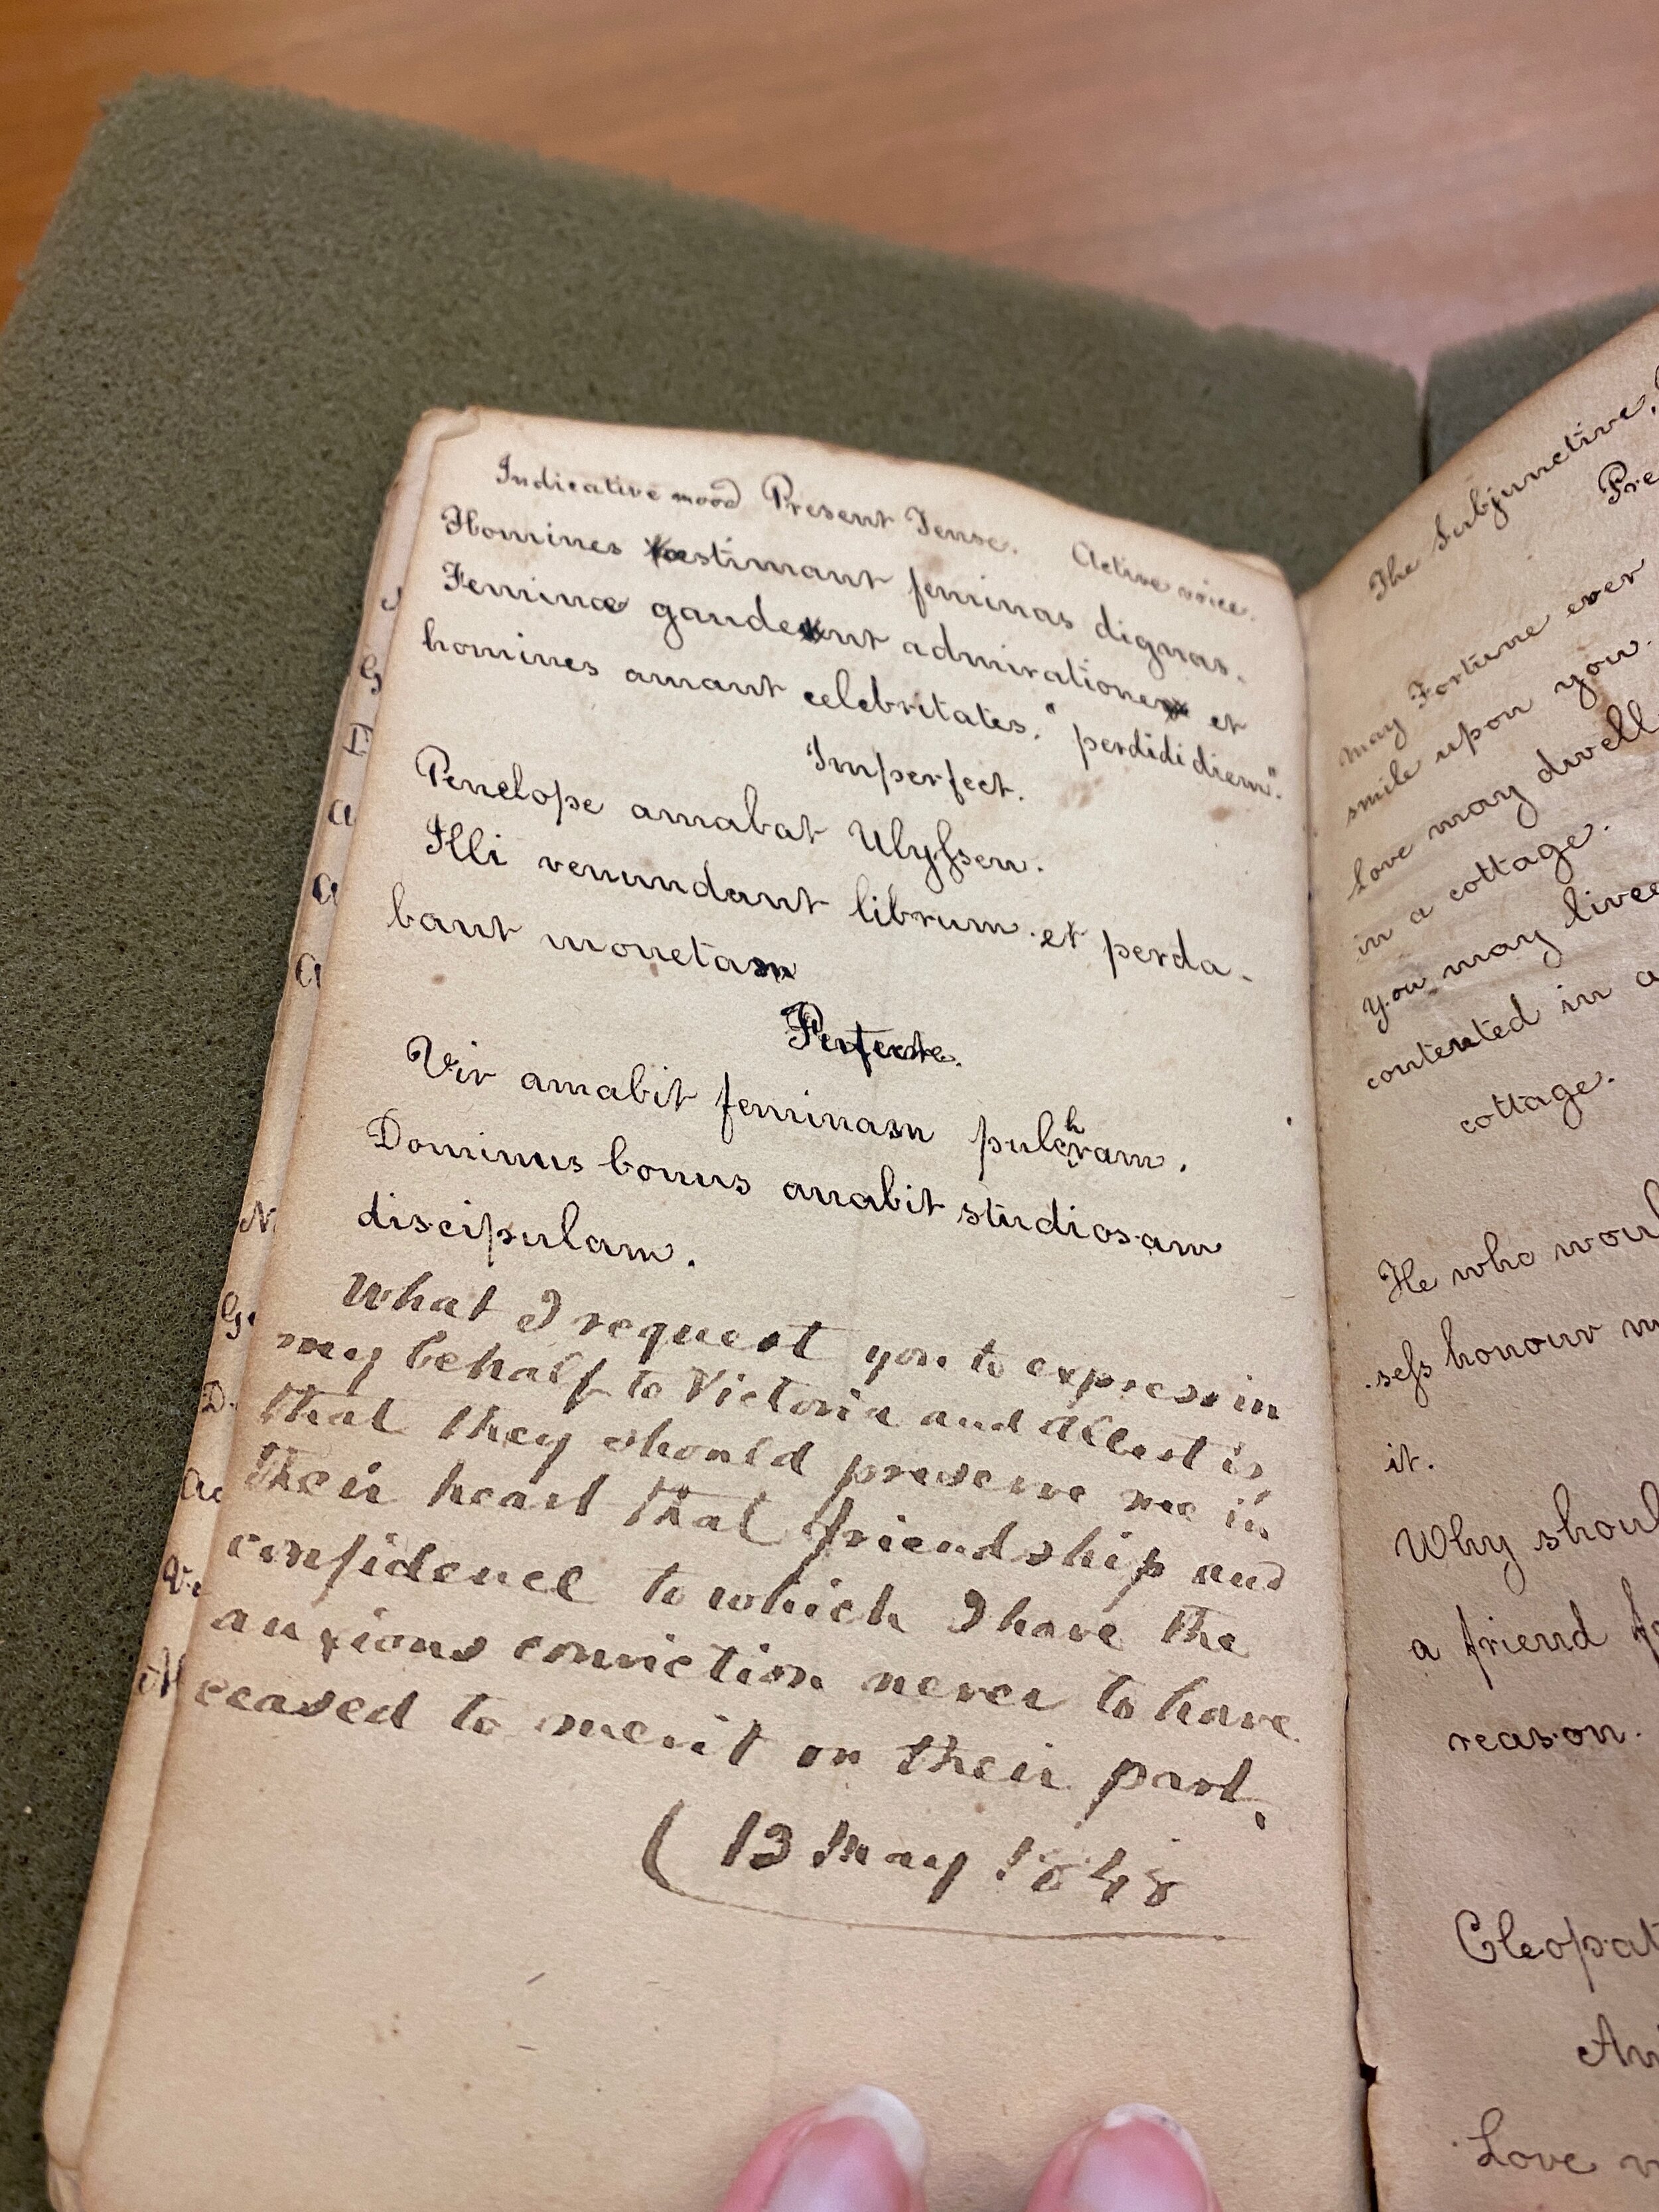 Indicative mood Present Tense. Active voice.
Homines æstimant feminas dignas.
Feminæ gaudent admiratione et
homines amant celebritates. "perdidi diem".
Imperfect.
Penelope amabat Ulyssem.
Illi venundant librum et perda-
bant monetam
Perfecte.
Vir amabit feminam pulchram.
Dominus bonus amabit studiosam
discipulam.
What I request you to express in
my behalf to Victoria and Albert is
that they should preserve me in
their heart that friendship and
confidence to which I have the
anxious conviction never to have
ceased to merit on their part.
(13 May 1848
The Subjunctive,
Pre
May Fortune ever
smile upon you.
Love may dwell
in a cottage.
You may live
contented in a
cottage.
He who woul
sess honour m
it.
Why shoul
a friend f
reason.
Cleopat
An
Love